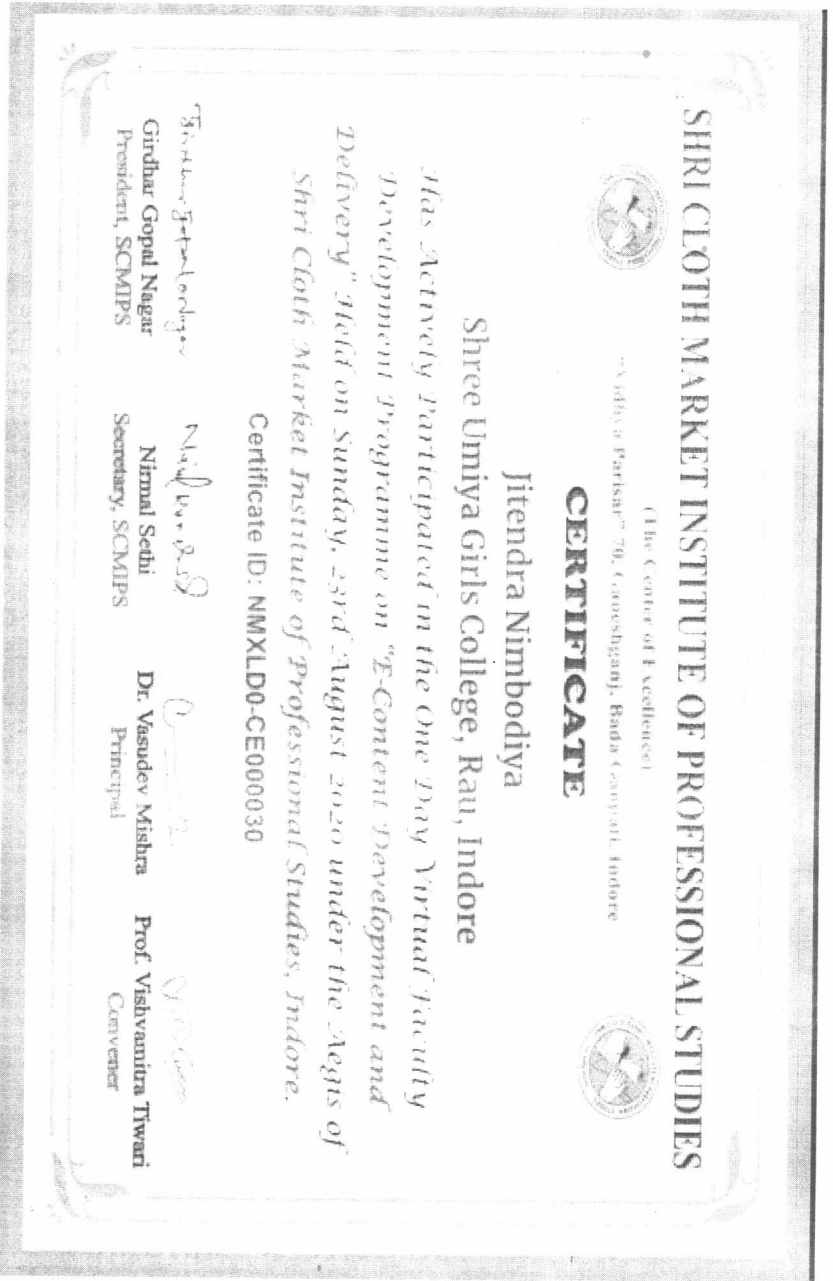 SHRI CLOTH MARKET INSTITUTE OF PROFESSIONAL STUDIES
(The Center of Excellence)
"Vidhya Parisar" 70, Ganeshganj, Bada Ganpati, Indore
CERTIFICATE
Jitendra Nimbodiya
Shree Umiya Girls College, Rau, Indore
Has Actively Participated in the One Day Virtual Faculty
Development Programme on "E-Content Development and
Delivery" Held on Sunday, 23rd August 2020 under the Aegis of
Shri Cloth Market Institute of Professional Studies, Indore.
Certificate ID: NMXLD0-CE000030
Girdhar Gopal Nagar Nirmal Sethi Dr. Vasudev Mishra Prof. Vishvamitra Tiwari
President, SCMIPS Secretary, SCMIPS Principal Convener